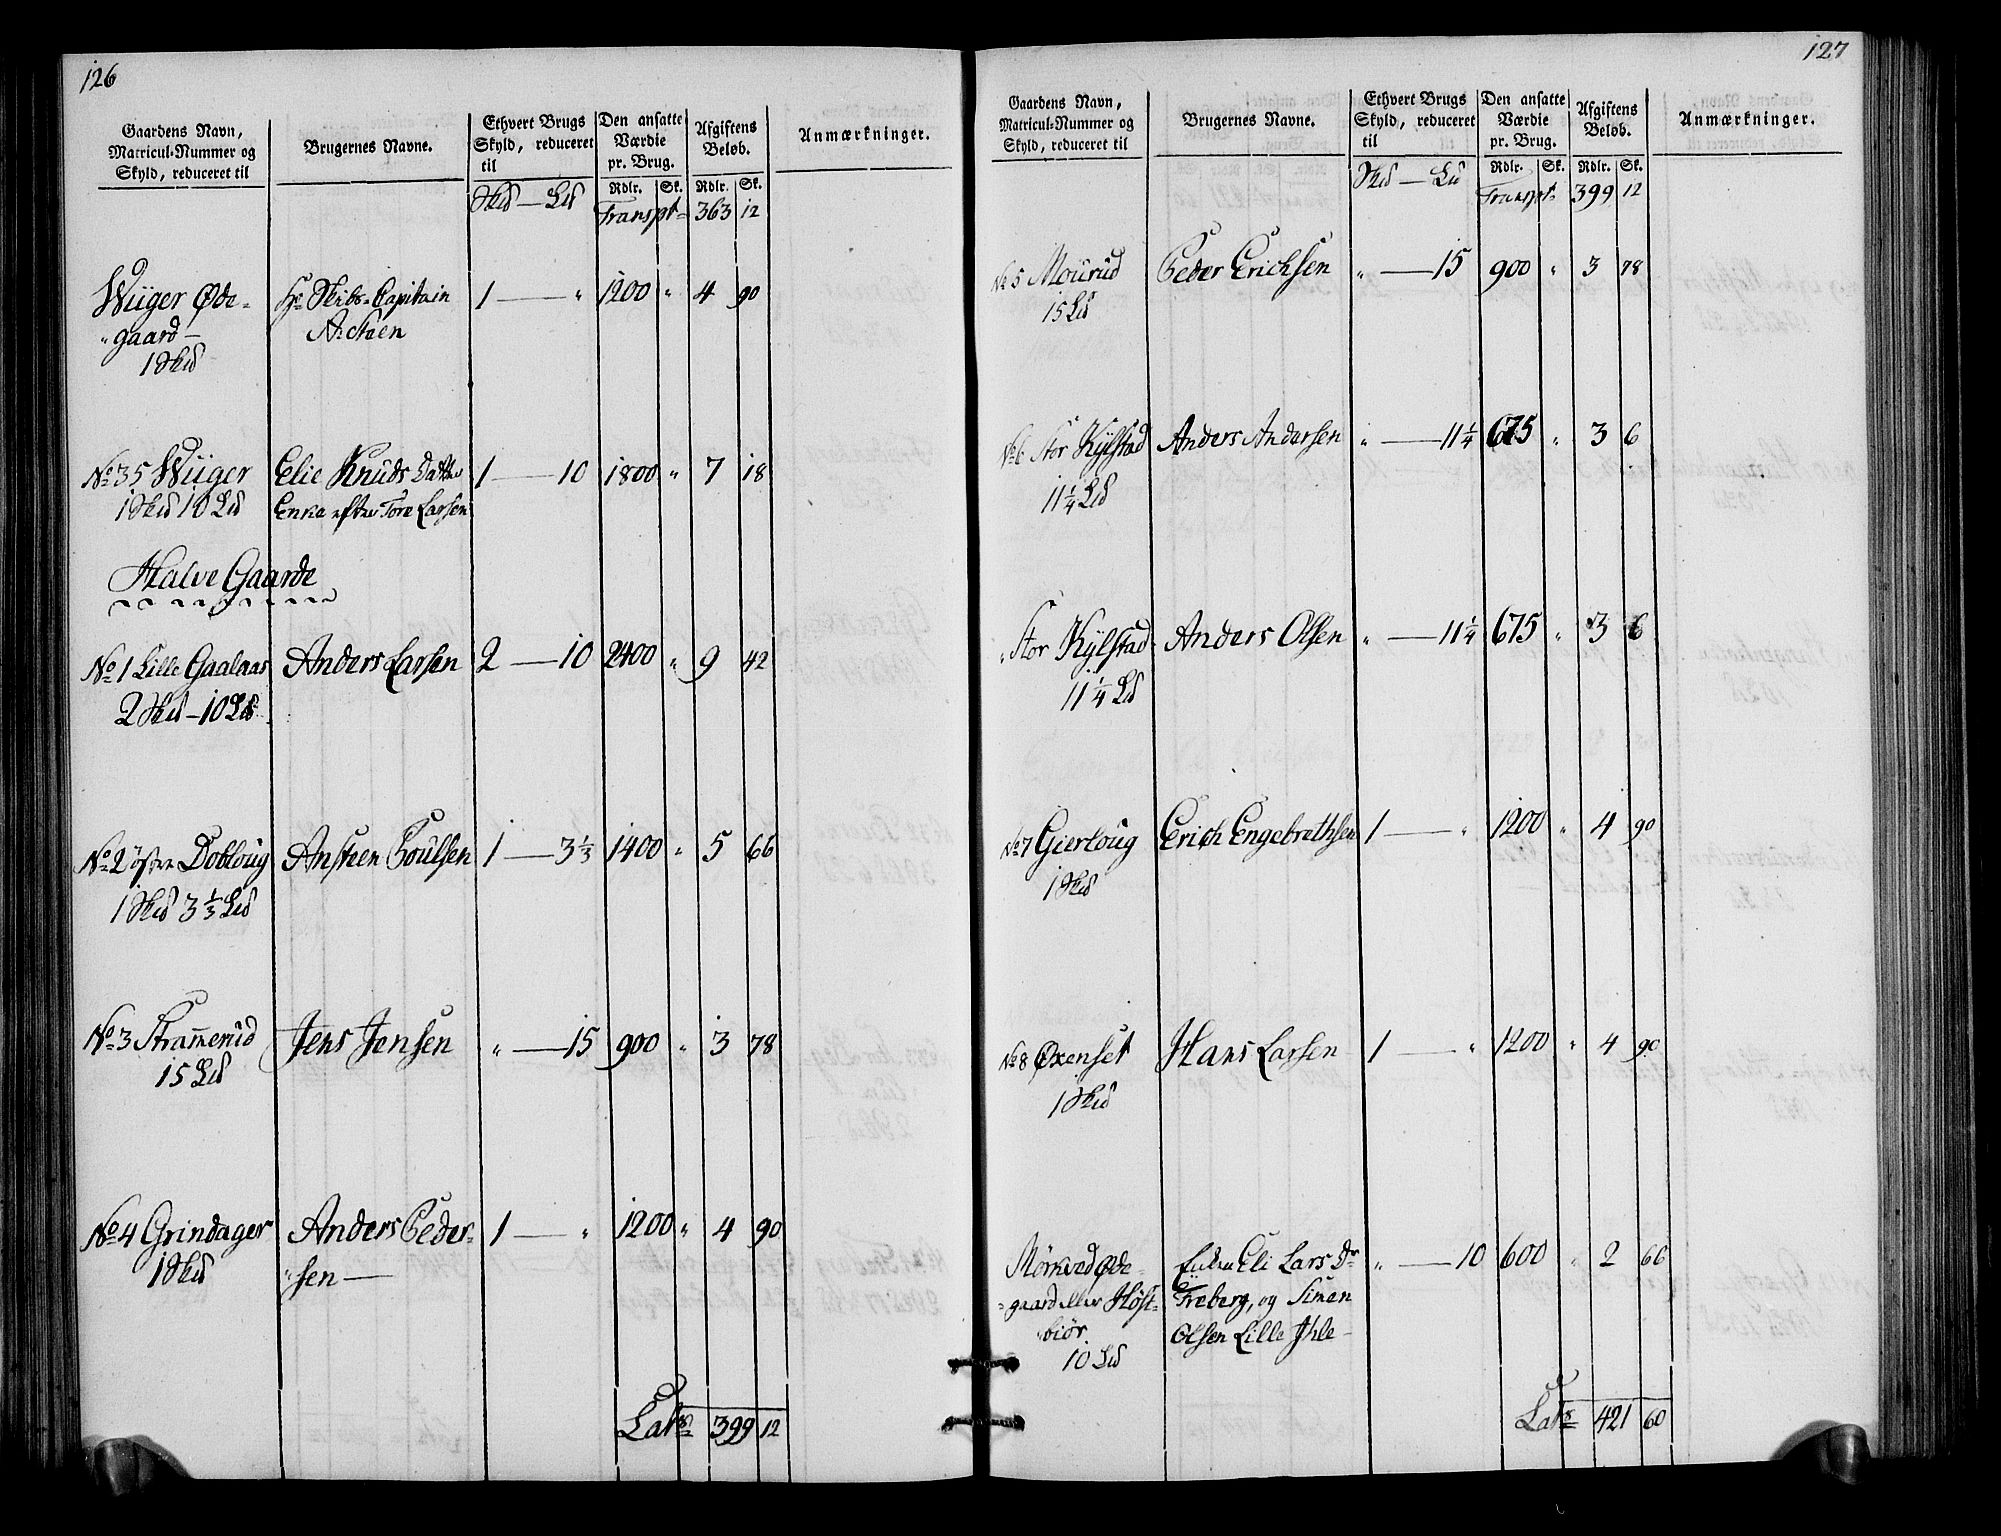 126
Gaardens Navn,
Matricul-Nummer og
Skyld, reduceret til
Brugernes Navne.
Ethvert Brugs
Skyld, reduceret
til
Den ansatte
Værdie
pr. Brug.
Afgiftens
Beløb.
Anmærkninger.
Rdlr. Sk. Rdlr. Sk.
Skd — Ld Transpt= 363 12
Wiiger Øde- Hr Skibs-Capitain 1 — " 1200 " 4 90
"gaard —
1 Skd
No 35 Wiiger Elie Knuds Datter 1 — 10 1800 " 7 18
1 Skd 10 Ld Enke efter Tore Larsen
Halve Gaarde
No 1 Lille Gaalaas Anders Larsen 2 — 10 2400 " 9 42
2 Skd - 10 Ld
No 2 øster Dobloug Ansteen Poulsen 1 — 3 1/3 1400 " 5 66
1 Skd 3 1/3 Ld
No 3 Stram̄erud Jens Jensen " — 15 900 " 3 78
15 Ld
No 4 Grindager Anders Peder- 1 — " 1200 " 4 90
1 Skd "sen —
Lats 399 12
127
Gaardens Navn,
Matricul-Nummer og
Skyld, reduceret til
Brugernes Navne.
Ethvert Brugs
Skyld, reduceret
til
Den ansatte
Værdie
pr. Brug.
Afgiftens
Beløb.
Anmærkninger.
Rdlr. Sk. Rdlr. Sk.
Skd — Ld Transpt= 399 12
No 5 Mourud Peder Erichsen " — 15 900 " 3 78
15 Ld
No 6 Stor Kylstad Anders Andersen " — 11 1/4 675 " 3 6
11 1/4 Ld
"Stor Kylstad Anders Olsen " — 11 1/4 675 " 3 6
11 1/4 Ld
No 7 Gierloug Erich Engebrethsen 1 — " 1200 " 4 90
1 Skd
No 8 Øxenset Hans Larsen 1 — " 1200 " 4 90
1 Skd
Mørkved Øde- Enken Eli Lars Dr " — 10 600 " 2 66
=gaard eller Høst- Freberg, og Simen
biør Olsen Lille Ihle -
10 Ld
Lats 421 60